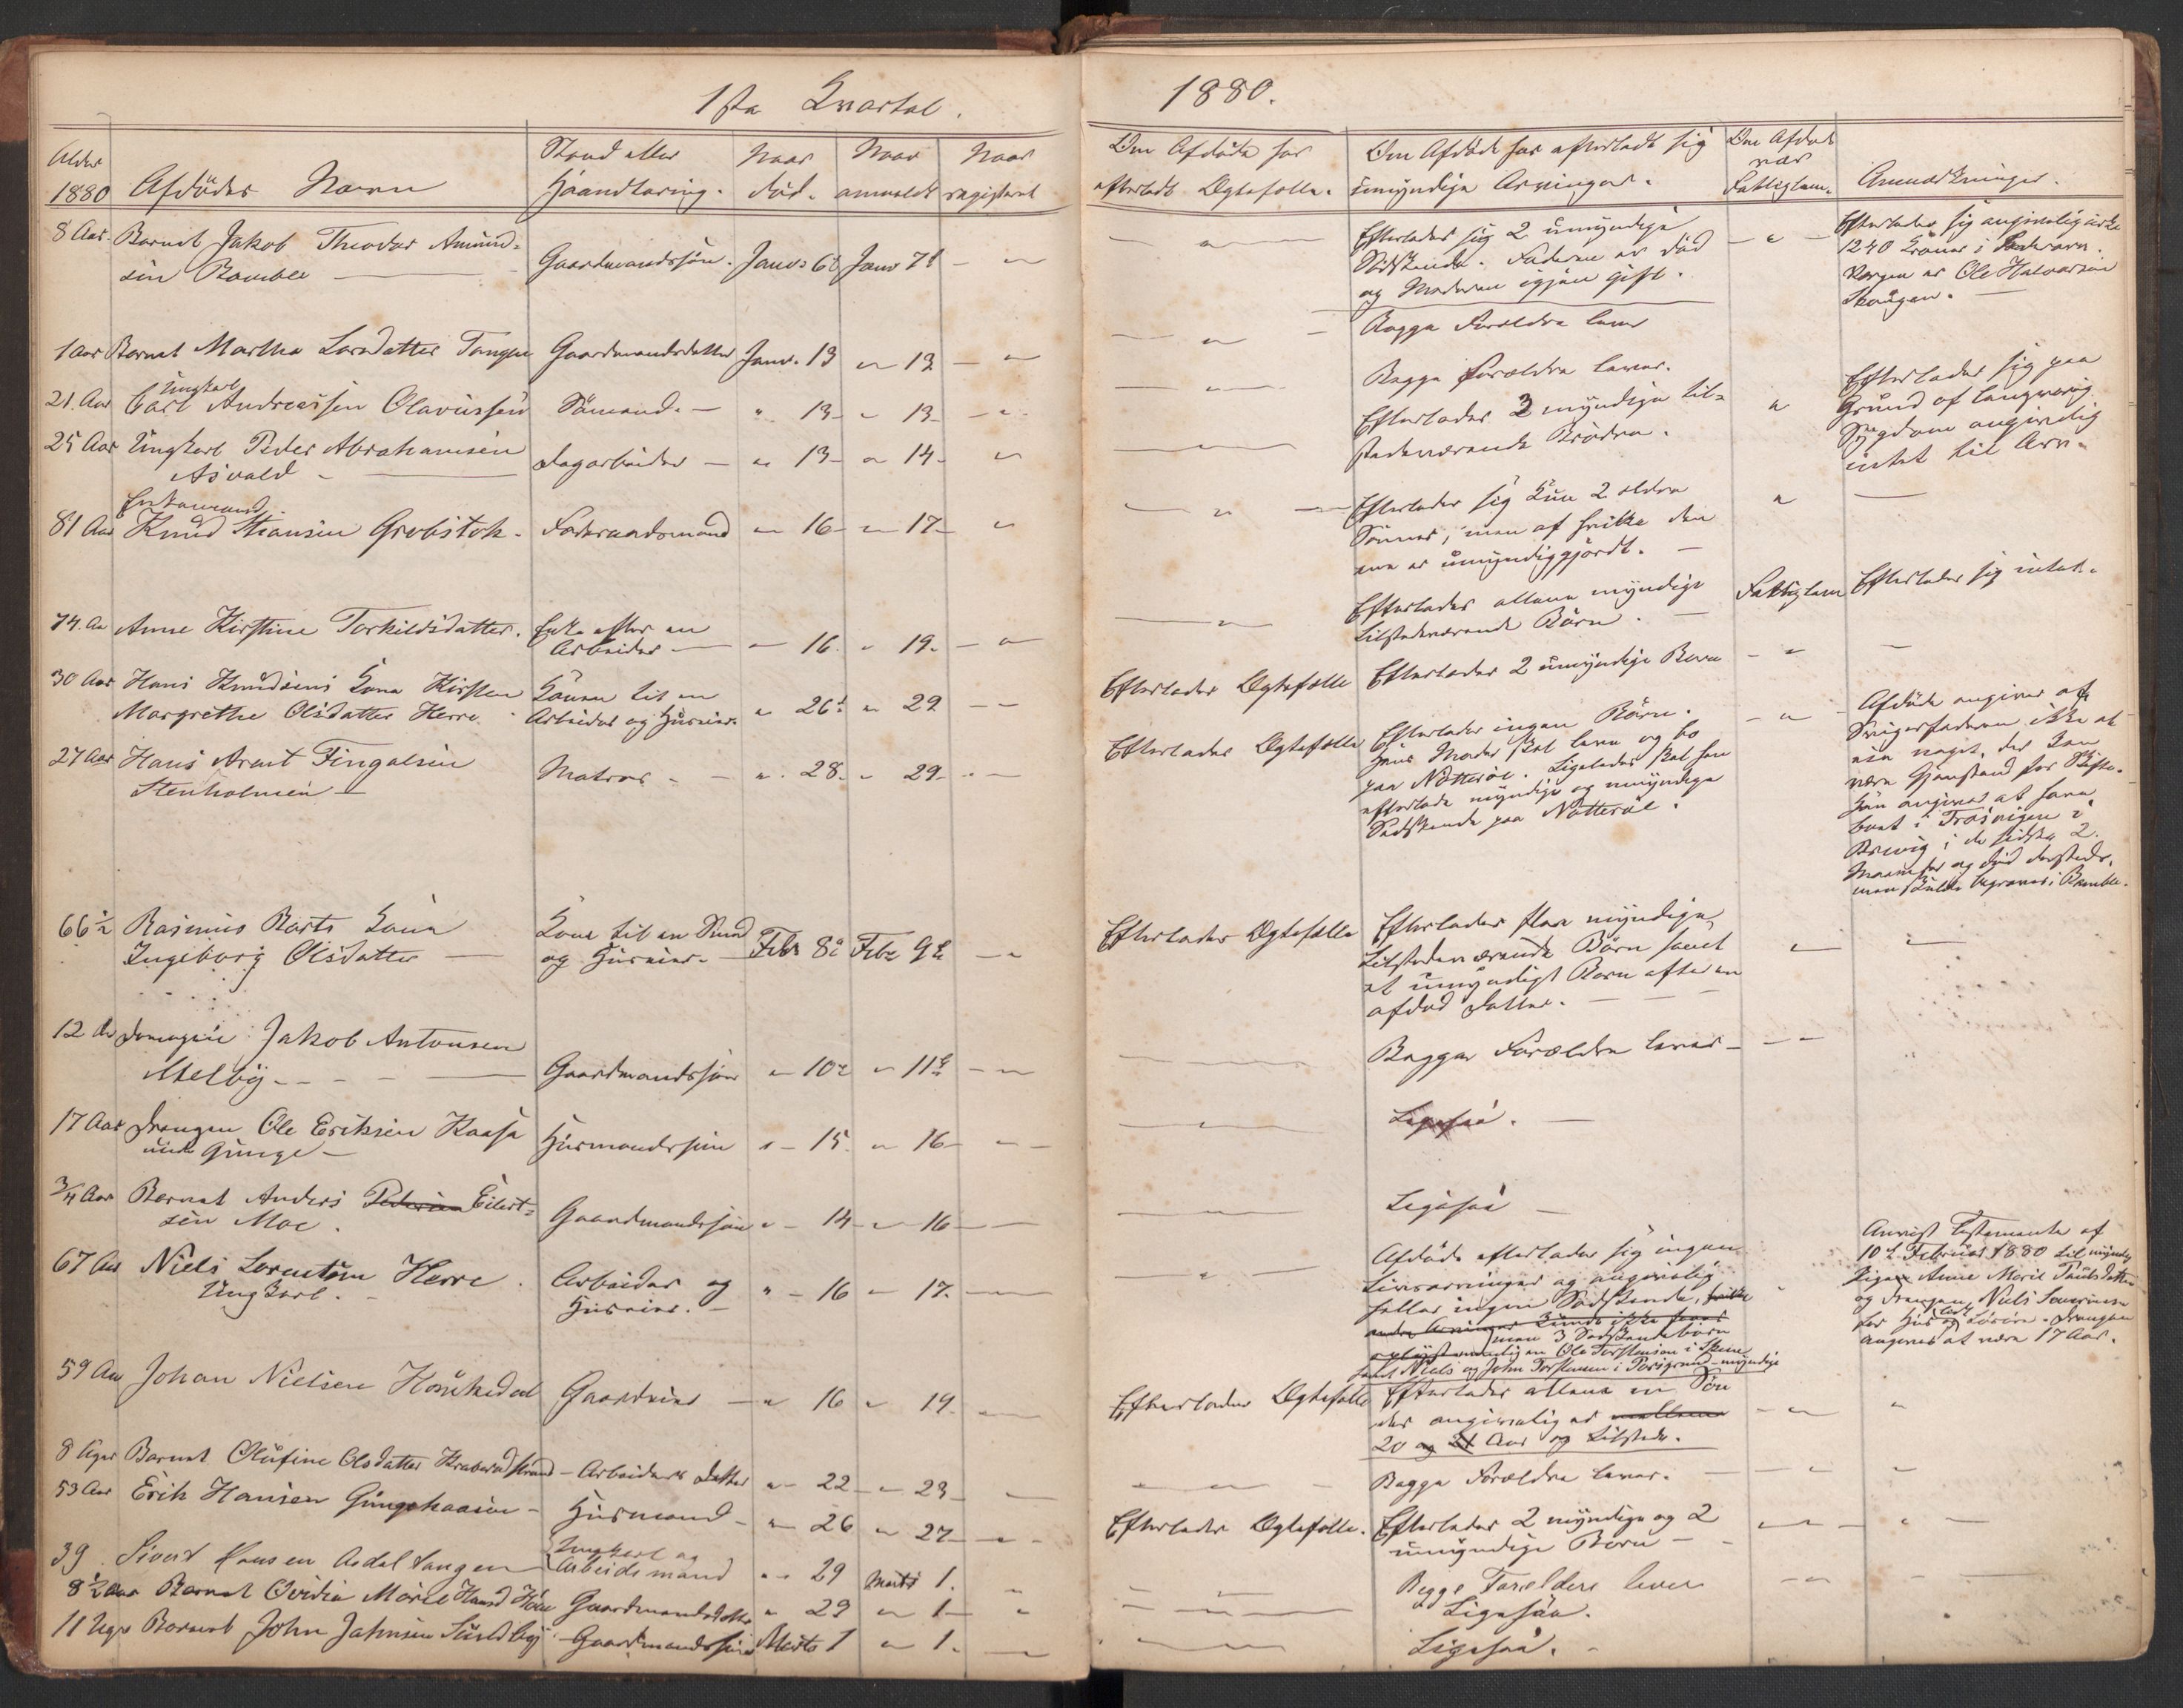 1ste Qvartal. 1880.
Alder 1880
Afdødes Navn
Stand eller Haandtering.
Naar død.
Naar anmeldt
Naar registeret
Om Afdøde har efterladt Ægtefælle.
Om Afdøde har efterladt sig umyndige Arvinger.
Om Afdøde var Fattiglem.
Anmærkninger.
8 Aar. Barnet Jakob Theodor Amund-
sen Bamble — Gaardmandssøn. Janr 6te Janr 7de — "
Efterlader sig 2 umyndige
Sødskende. Faderen er død
og Moderen igjen gift.
Efterlader sig angivelig
1240 Kroner i
Værgen er Ole Halvorsen
Skougen.
1 Aar Barnet Martha Larsdatter Tangen Gaardmandsdatter Janr. 13 " 13 — "
Begge Forældre lever
21. Aar Ungkarl
Carl Andreassen Olavussen Sømand. — " 13 — " 13 — "
Begge Forældre lever.
25 Aar Ungkarl Peder Abrahamsen
Asvald — Dagarbeider — " 13 — " 14 — "
Efterlader 3 myndige til-
stedeværende Brødre. "
Efterlader sig paa
Grund af langvarig
Sygdom angivelig
intet til Arv.
81 Aar Enkemand
Knud Stiansen Grobstok. Foderaadsmand " 16 — " 17 — "
Efterlader sig kun 2 ældre
Sønner, men af hvilke den
ene er umyndiggjordt. —
74. Aar Anne Kirstine Torkildsdatter. Enke efter en
Arbeider — " 16. " 19. — "
Efterlader allene myndige
tilstedeværende Børn. —
Fattiglem Efterlader sig intet.
30 Aar Hans Knudsens Kone Kirsten
Margrethe Olsdatter Herre. Konen til en
Arbeider og Huseier. " 26de " 29 — —
Efterlader Ægtefælle Efterlader 2 umyndige Børn — "
27 Aar Hans Arent Fingalsen
Stenholmen — Matros — " 28. " 29. — —
Efterlader Ægtefælle Efterlader ingen Børn.
Hans Moder skal leve og bo
paa Nøtterøe. Ligeledes skal han
efterlade myndige og umyndige
Sødskende paa Nøtterøe.
Afdøde angives af
Svigerfaderen ikke at
eie noget, der kan
være Gjenstand for Skifte.
Han angives at have
boet i Trosvigen i
Brevig i de sidste 2
Maaneder og død dersteds,
men skulde begraves i Bamble.
66½ Rasmus Barts Kone
Ingeborg Olsdatter — Kone til en Smed
og Huseier. — Febr 8de Febr 9de — "
Efterlader Ægtefælle Efterlader flere myndige,
tilstedeværende Børn samt
et umyndigt Barn efter en
afdød Datter. —
12 Aar Drengen Jakob Antonsen
Melby — Gaardmandssøn " 10de " 11te — "
Begge Forældre lever — — "
17 Aar Drengen Ole Eriksen Kaasa
under Gunge — Husmandssøn " — 15 " 16 — " —
Ligesaa. —
¾ Aar Barnet Anders Pedersen Eilert-
sen Moe. Gaardmandssøn " — 14 — " 16 — —
Ligesaa —
67 Aar Niels Lorentsen Herre.
Ungkarl. — Arbeider og
Huseier. — " — 16 — 17. —
Afdøde efterlader sig ingen
Livsarvinger og angivelig
heller ingen Sødskende,
men 3 Sødskendebørn
Ole Torstensen i Skien
samt Niels og John Torstensen i Porsgrund — myndige
Anvist Testamente af
10de Februar 1880 til myndig
Pige Anne Marie Paulsdatter
og Drengen Niels
Drengen
angives at være 17 Aar.
59 Aar Johan Nielsen Gaardeier — " 16 " 19. —
Efterlader Ægtefælle Efterlader allene en Søn
der angivelig er mellem
20 og 21 Aar og tilstede.
8 Uger Barnet Olufine Olsdatter — Arbeiders Datter " — 22 — " 23 — —
Begge Forældre lever. —
53 Aar Erik Hansen Gungekaasen — Husmand — " 26 " 27 — " —
Efterlader Ægtefælle. Efterlader 2 myndige og 2
umyndige Børn —
39. Sivert Hansen Asdal tangen Ungkarl og
Arbeidsmand " " 29 Marts 1. "
Begge Forældere lever
8½ Aar Barnet Ovidia Marie Gaardmandsdatter " 29 " 1 — "
Ligesaa.
11 Uger Barnet John Jahnsen Sundby — Gaardmandssøn Marts 1 " 1. —
Ligesaa. —